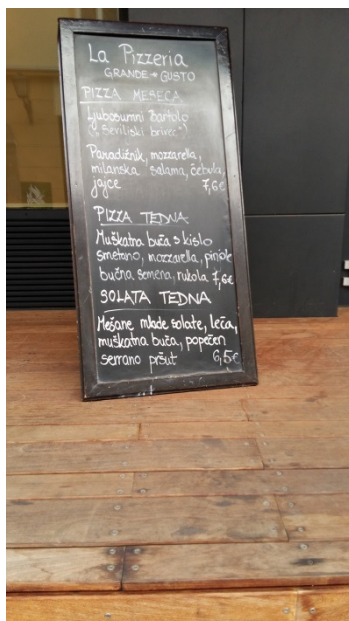 La Pizzeria
GRANDE GUSTO
PIZZA MESECA
Ljubosumni Bartolo
("Seviljski brivec")
Paradižnik, mozzarella,
milanska salama, čebula,
jajce 7,6€
PIZZA TEDNA
Muškatna buča s kislo
smetano, mozzarella, pinjole
bučna semena, rukola 7,6€
SOLATA TEDNA
Mešane mlade solate, leča,
muškatna buča, popečen
serrano pršut 6,5€